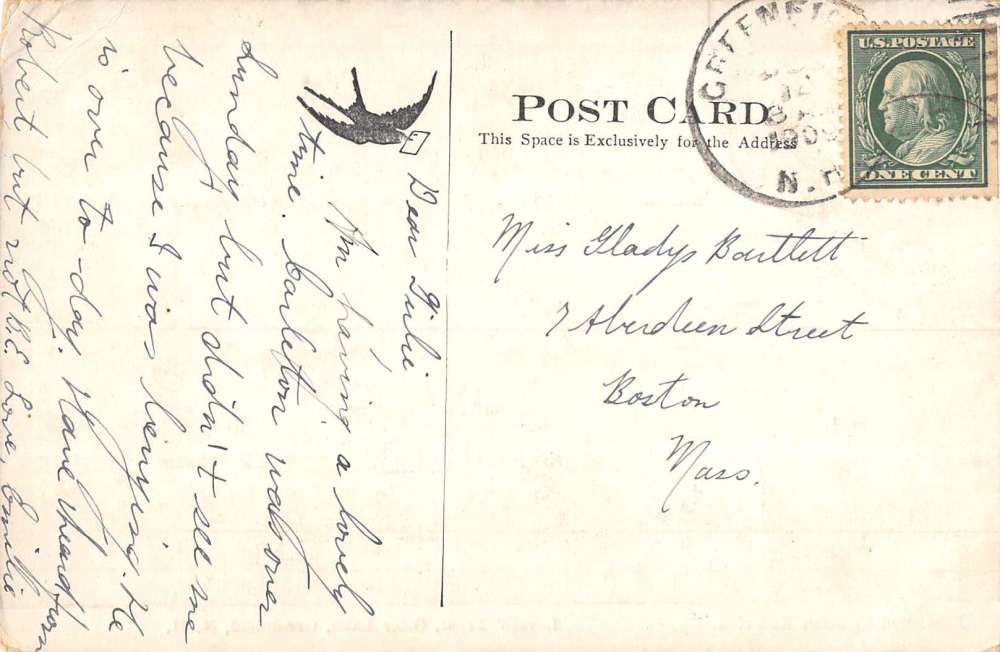 Dear Gubie
I'm having a lovely
time. Carleton was over
Sunday but didn't see me
because I was
He
is over to-day. Have heard from
Robert but not B.E. Love, Emilie
POST CARD
This Space is Exclusively for the Address
Miss Gladys Bartlett
7 Aberdeen Street
Boston
Mass.
GREENFIE
8 AM
1909
N.H
U.S. POSTAGE
ONE CENT